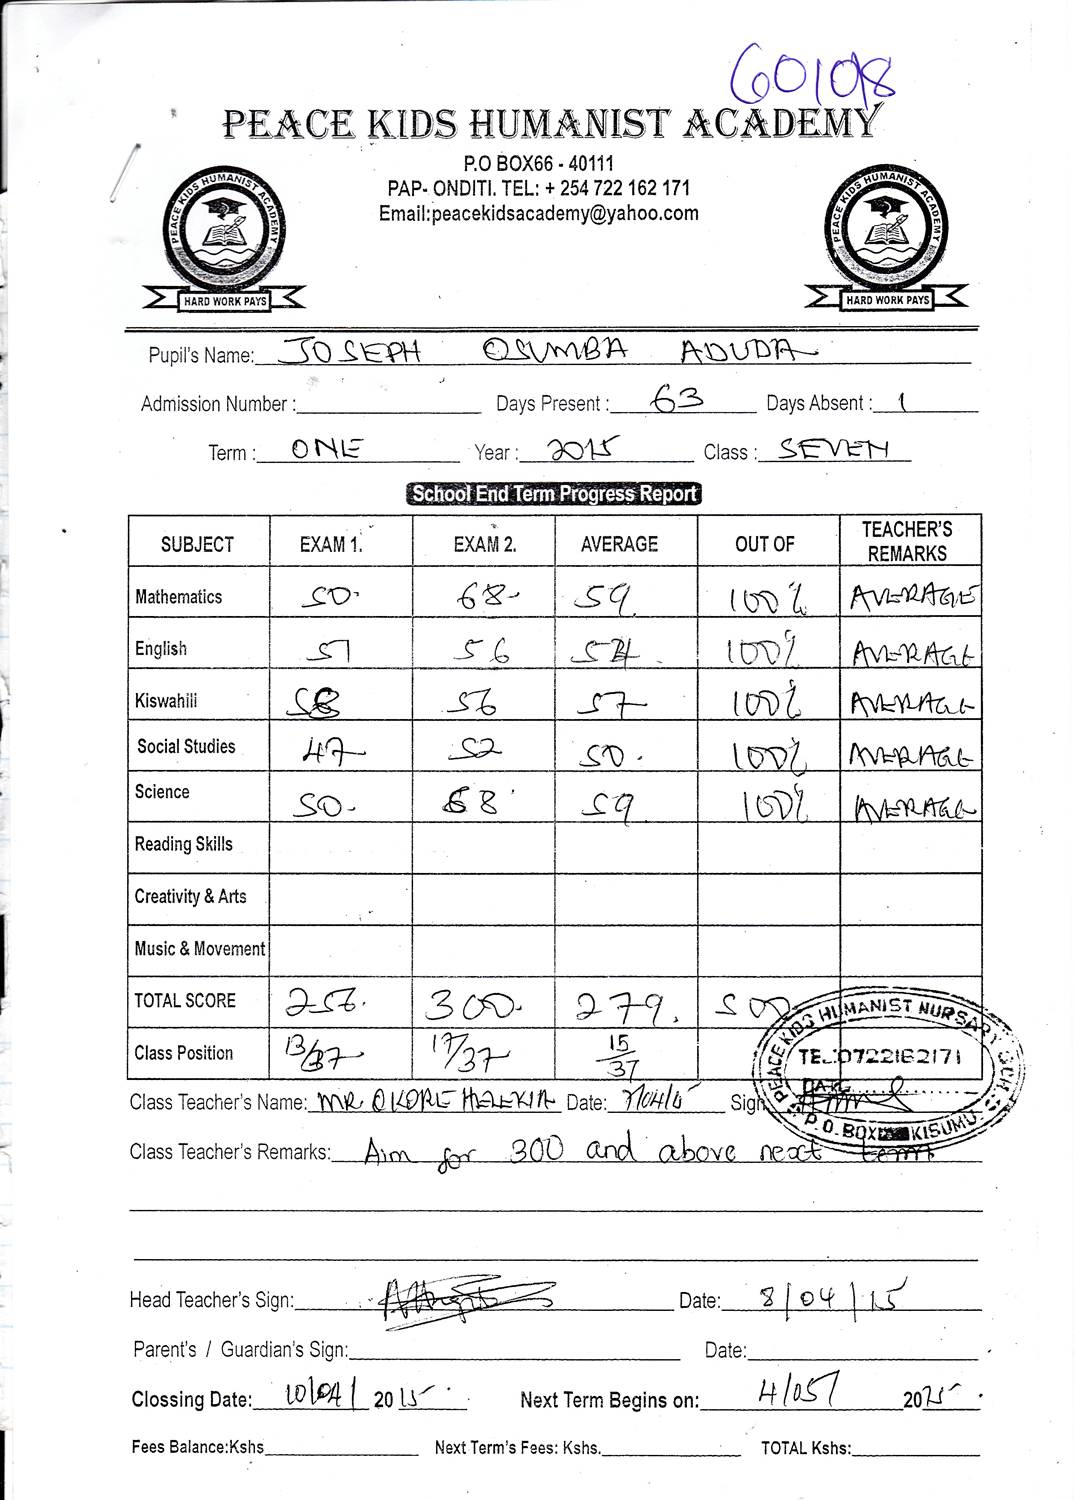 60108
PEACE KIDS HUMANIST ACADEMY
P.O BOX66 - 40111
PAP- ONDITI. TEL: + 254 722 162 171
Email:peacekidsacademy@yahoo.com
PEACE KIDS HUMANIST ACADEMY
HARD WORK PAYS
PEACE KIDS HUMANIST ACADEMY
HARD WORK PAYS
Pupil's Name: JOSEPH OSUMBA ADUDA
Admission Number : Days Present : 63 Days Absent : 1
Term : ONE Year : 2015 Class : SEVEN
School End Term Progress Report
SUBJECT EXAM 1. EXAM 2. AVERAGE OUT OF TEACHER'S REMARKS
Mathematics 50 68 59 100% AVERAGE
English 51 56 54 100% AVERAGE
Kiswahili 58 56 57 100% AVERAGE
Social Studies 47 52 50 100% AVERAGE
Science 50 68 59 100% AVERAGE
Reading Skills
Creativity & Arts
Music & Movement
TOTAL SCORE 256 300 279 500
Class Position 13/37 17/37 15/37
PEACE KIDS HUMANIST NURSARY SCH
TEL:0722162171
P.O. BOX KISUMU
Class Teacher's Name: MR OKORE Date: Sign
Class Teacher's Remarks: Aim for 300 and above next term
Head Teacher's Sign: Date: 8/04/15
Parent's / Guardian's Sign: Date:
Clossing Date: 10/04/ 2015 Next Term Begins on: 4/05/ 2015
Fees Balance:Kshs Next Term's Fees: Kshs. TOTAL Kshs: